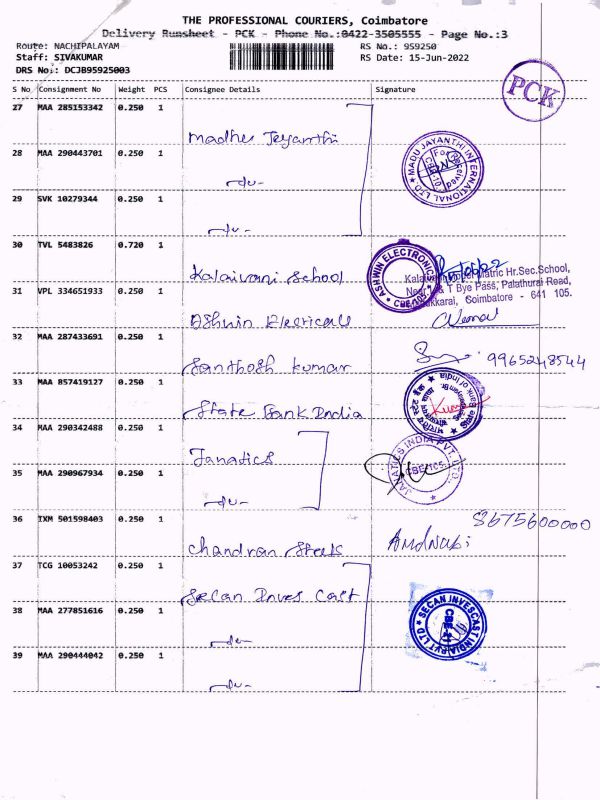 THE PROFESSIONAL COURIERS, Coimbatore
Delivery Runsheet - PCK - Phone No.:0422-3505555 - Page No.:3
Route: NACHIPALAYAM
RS No.: 959250
Staff: SIVAKUMAR
RS Date: 15-Jun-2022
DRS No.: DCJB95925003
PCK
S No Consignment No Weight PCS Consignee Details Signature
27 MAA 285153342 0.250 1
Madhu Jeyanthi
MADU JAYANTHI INTERNATIONAL LTD
28 MAA 290443701 0.250 1
-do-
29 SVK 10279344 0.250 1
-do-
30 TVL 5483826 0.720 1
Kalaivani School
ASHWIN ELECTRONICS
Matric Hr.Sec.School,
T Bye Pass, Palathurai Road,
Coimbatore - 641 105.
31 VPL 334651933 0.250 1
Ashwin Electricals
32 MAA 287433691 0.250 1
Santhosh kumar
9965248544
33 MAA 857419127 0.250 1
State Bank India
State Bank of India
34 MAA 290342488 0.250 1
Janatics
JANATICS INDIA PVT. LTD.
CBE-105.
35 MAA 290967934 0.250 1
-do-
36 IXM 501598403 0.250 1
Chandran Steels
8675600000
37 TCG 10053242 0.250 1
Secan Inves Cast
SECAN INVESCAST INDIA PVT LTD
38 MAA 277851616 0.250 1
-do-
39 MAA 290444042 0.250 1
-do-